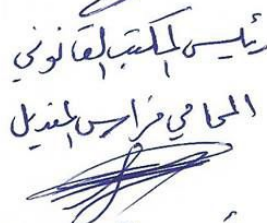 رئيس المكتب القانوني
المحامي فراس المقديل